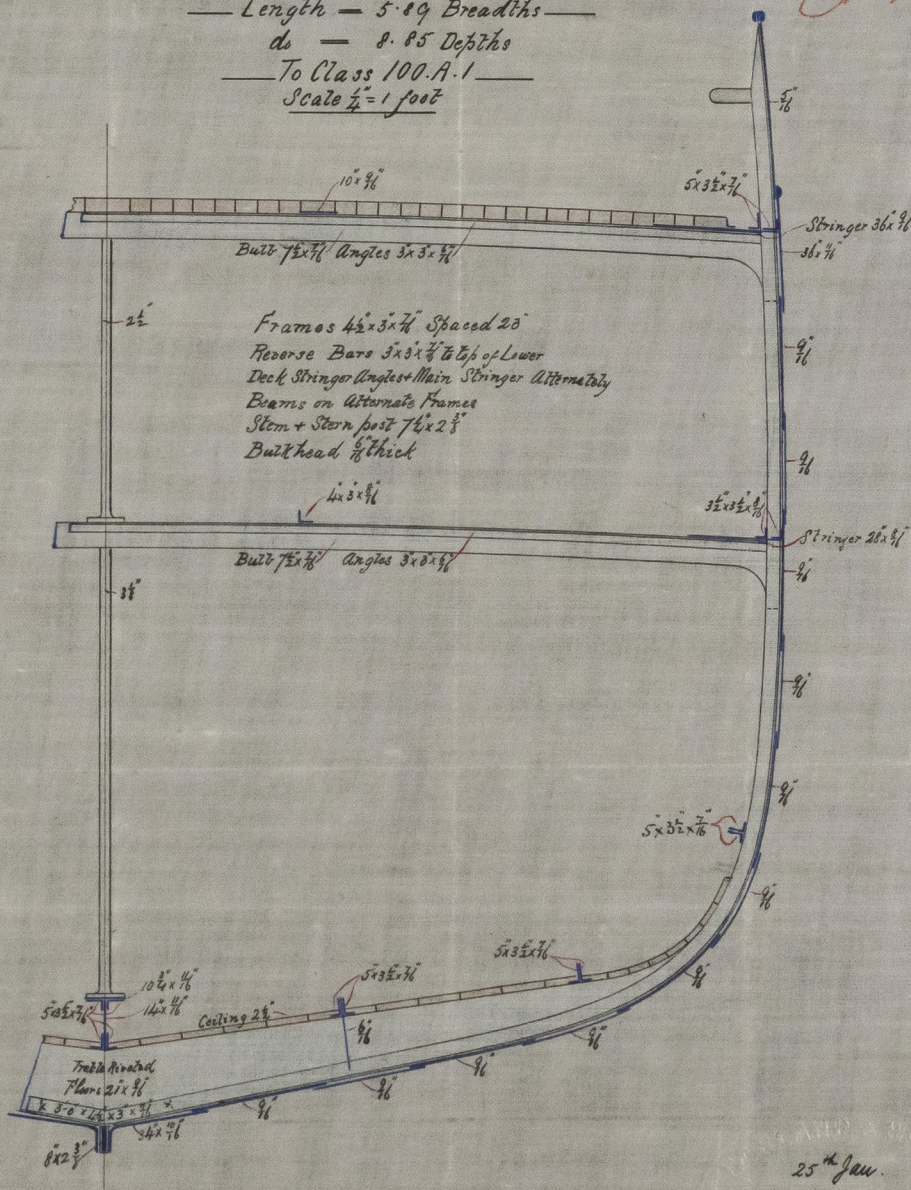 Length = 5·89 Breadths
do = 8·85 Depths
To Class 100.A.1
Scale 1/4" = 1 foot
5/16"
10" x 9/16"
5" x 3 1/2" x 7/16"
Stringer 36" x 9/16"
Bulb 7 1/2" x 7/16" Angles 3" x 3" x 6/16"
2 1/2"
9/16"
Frames 4 1/2" x 3" x 7/16" Spaced 23"
Reverse Bars 3" x 3" x 7/16" to top of Lower
Deck Stringer Angles + Main Stringer Alternately
Beams on Alternate Frames
Stem + Stern post 7 1/4" x 2 3/8"
Bulkhead 6/16" thick
9/16"
4" x 3" x 8/16"
3 1/2" x 3 1/2" x 8/16"
Stringer 28" x 8/16"
Bulb 7 1/2" x 7/16" Angles 3" x 3" x 6/16"
9/16"
9/16"
9/16"
5" x 3 1/2" x 7/16"
9/16"
5" x 3 1/2" x 7/16"
5" x 3 1/2" x 7/16"
9/16"
10 3/4" x 11/16"
5" x 3 1/2" x 7/16"
14" x 11/16"
Ceiling 2 1/2"
6/16"
9/16"
9/16"
Treble Riveted
Floors 21" x 9/16"
9/16"
9/16"
34" x 10/16"
8" x 2 3/8"
25th Jan.